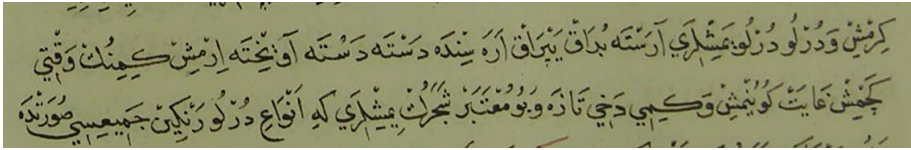 كِرْمِشْ وَدُرْلُو دُرْلُو يَمِشْلَرِي آرَسْتَه بُدَاقْ يَپْرَاقْ اَرَه سِنْدَه دَسْتَه دَسْتَه آوِيخْتَه اِرْمِشْ كِمِنُكْ وَقْتِي
كَچْمِشْ غَايَتْ كُويُنْمِشْ وَكِمِي دَخِي تَازَه وَبُو مُعْتَبَرْ شَجَرُكْ يِمِشْلَرِي كِه اَنْوَاعِ دُرْلُو رَنْكِينْ جَمِيعِيسِي صُورَتْدَه